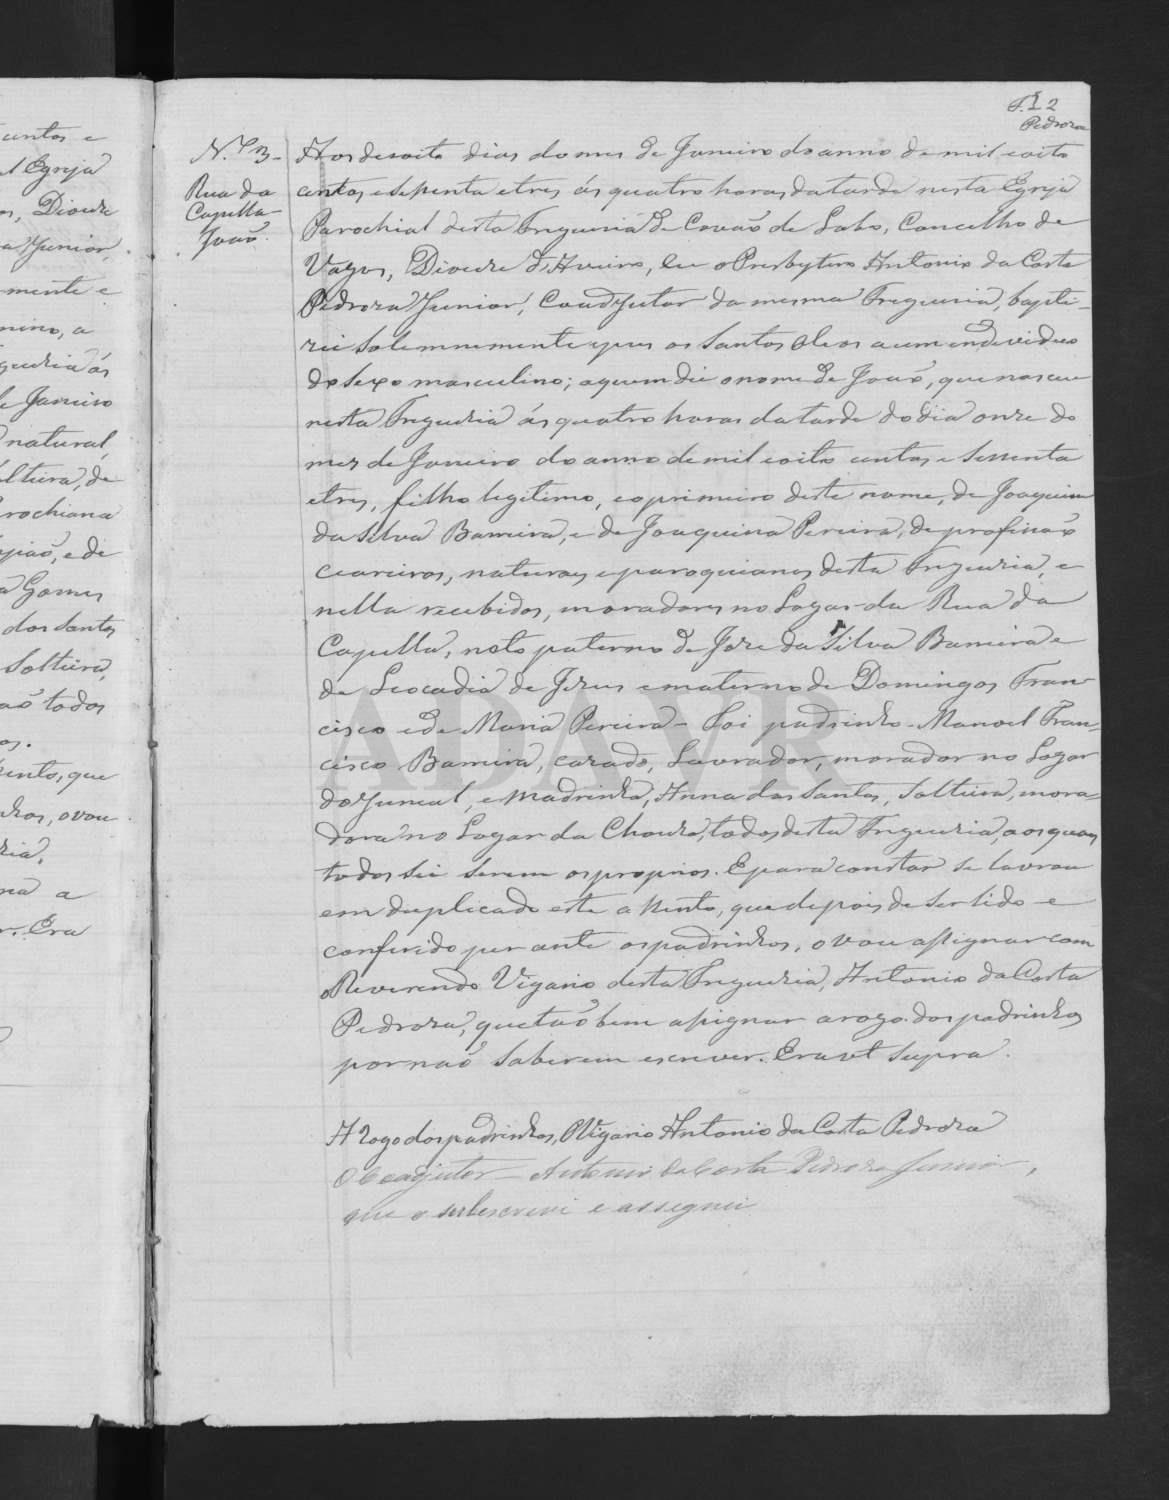 untos e
Egreja
os, Diocese
a Junior,
mente e
nino, a
guezia ás
de Janeiro
natural,
olteira, de
rochiana
pião, e de
a Gomes
dos Santos
Solteira,
aõ todos
os.
ento, que
nhos, o vou
zia,
na a
r. Era
F. 2
Pedroza
N.º 3-
Rua da
Capella
Joaõ.
Aos desoito dias do mes de Janeiro do anno de mil e oito
centos e sessenta e tres, ás quatro horas da tarde nesta Egreja
Parochial desta Freguezia de Covaõ de Lobo, Concelho de
Vagos, Diocese d'Aveiro, Eu o Presbytero Antonio da Costa
Pedroza Junior, Coadjutor da mesma Freguezia, bapti-
zei solemnemente e puz os Santos Oleos a um endeviduo
do sexo masculino; a quem dei o nome de Joaõ, que nasceu
nesta Freguezia ás quatro horas da tarde do dia onze do
mez de Janeiro do anno de mil e oito centos e sessenta
e tres, filho legitimo, e o primeiro deste nome, de Joaquim
da Silva Bameira, e de Joaquina Pereira, de profissaõ
ceareiros, naturaes e paroquianos desta Freguezia, e
nella recebidos, moradores no Logar da Rua da
Capella, neto paterno de Joze da Silva Bameira e
de Leocadia de Jezus e materno de Domingos Fran-
cisco e de Maria Pereira - Foi padrinho - Manoel Fran-
cisco Bameira, cazado, Lavrador, morador no Logar
do Juncal, e Madrinha, Anna dos Santos, Solteira, mora-
dora no Logar da Chouza, todos desta Freguezia, aos quaes
todos sei serem os proprios. E para constar se lavrou
em duplicado este assento, que depois de ser lido e
conferido perante os padrinhos, o vou assignar com
o Reverendo Vigario desta Freguezia, Antonio da Costa
Pedroza, que taõ bem assignar a rogo dos padrinhos
por naõ saberem escrever. Era ut supra.
A rogo dos padrinhos, O Vigario Antonio da Costa Pedroza
O Coadjutor - Antonio da Costa Pedroza Junior,
que o subescrevi e assegnei
ADAVR